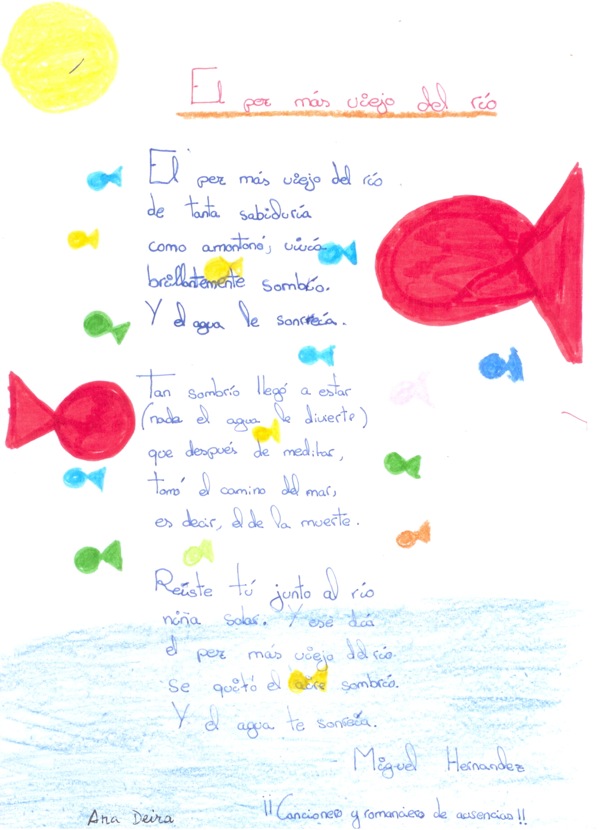 El pez más viejo del río
El pez más viejo del río
de tanta sabiduría
como amontonó, vivía
brillantemente sombrío.
Y el agua le sonreía.
Tan sombrío llegó a estar
(nada el agua le divierte)
que después de meditar,
tomó el camino del mar,
es decir, el de la muerte.
Reíste tú junto al río
niña solar. Y ese día
el pez más viejo del río
se quitó el aire sombrío.
Y el agua te sonreía.
Miguel Hernandez
Ana Deira
!!Canciones y romancies de ausencias!!